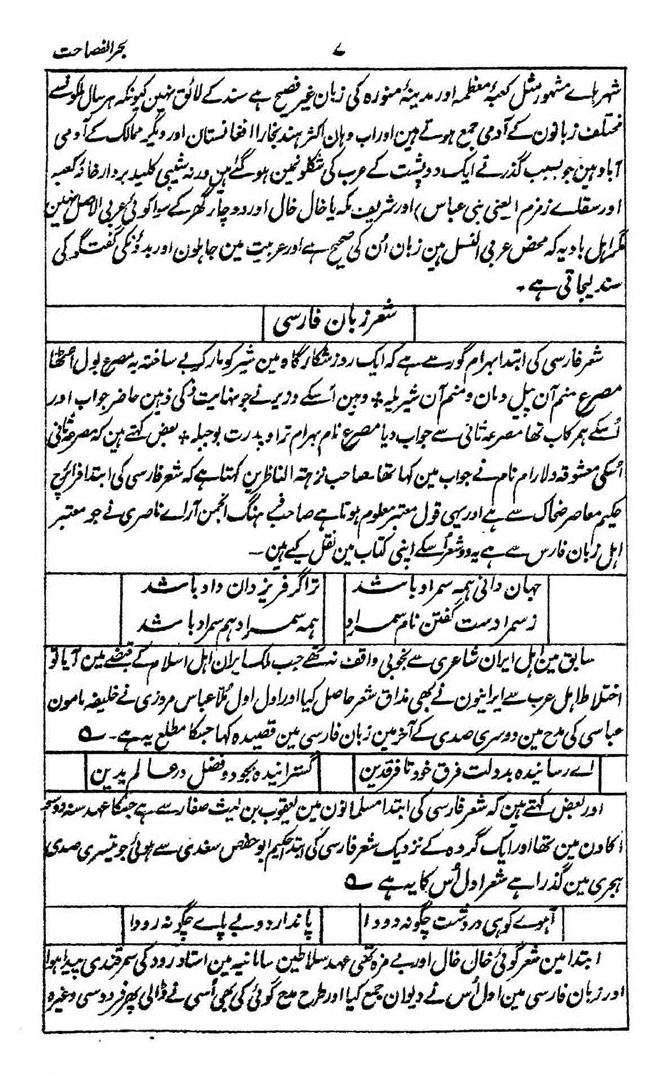 بحر الفصاحت
۷
شہرہاے مشہور مثل کعبۂ معظمہ اور مدینۂ منورہ کی زبان غیر فصیح ہے سند کے لائق نہین کیونکہ ہر سال
مختلف زبانون کے آدمی جمع ہوتے ہین اور اب وہان اکثر ہند بخارا افغانستان اور دیگر ممالک کے آدمی
آباد ہین جو بسبب گذرنے ایک دو پشت کے عرب کی شکلونمین ہو گئے ہین ورنہ شیبی کلید بردار خانہ کعبہ
اور سقاے زمزم (یعنی بنی عباس) اور شریف مکہ یا خال خال اور دو چار گھر کے سوا کوئی عربی الاصل نہین
مگر اہل بادیہ کہ محض عربی النسل ہین زبان اُن کی صحیح ہے اور عربیت مین جاہلون اور بدؤنکی گفتگو کی
سند لیجاتی ہے۔
شعر زبان فارسی
شعر فارسی کی ابتدا بہرام گور سے ہے کہ ایک روز شکارگاہ مین شیر کو مار کر بے ساختہ یہ مصرع بول اُٹھا
مصرع منم آن پیل دمان و منم آن شیر یلہ ٭ وہین اُسکے وزیر نے جو نہایت ذکی ذہین حاضر جواب اور
اُسکے ہمرکاب تھا مصرعہ ثانی سے جواب دیا مصرع نام بہرام ترا و پدرت بوجبلہ ٭ بعض کہتے ہین کہ مصرعہ ثانی
اُسکی معشوقہ دلارام نام نے جواب مین کہا تھا۔ صاحب نزہتہ الناظرین کہتا ہے کہ شعر فارسی کی ابتدا
حکیم معاصر ضحاک سے ہے اور یہی قول معتبر معلوم ہوتا ہے صاحب فرہنگ انجمن آراے ناصری نے جو معتبر
اہل زبان فارس سے ہے یہ دو شعر اُسکے اپنی کتاب مین نقل کیے ہین۔
جہان دانی ہمہ سمراد باشد ترا گر فریزدان داد باشد
ز سمراد ست گفتن نام سمراد ہمہ سمراد ہم سمراد باشد
سابق مین اہل ایران شاعری سے بخوبی واقف نہ تھے جب ملک ایران اہل اسلام کے قبضے مین آیا تو
اختلاط اہل عرب سے ایرانیون نے بھی مذاق شعر حاصل کیا اور اول اول ملا عباس مروزی نے خلیفہ مامون
عباسی کی مدح مین دوسری صدی کے آخر مین زبان فارسی مین قصیدہ کہا جسکا مطلع یہ ہے۔ ؎
اے رسانیدہ بدولت فرق خود تا فرقدین گسترانیدہ بجود و فضل در عالم یدین
اور بعض کہتے ہین کہ شعر فارسی کی ابتدا مسلمانون مین یعقوب بن لیث صفار سے ہے جسکا عہد سنہ دو سو
اکاون مین تھا اور ایک گروہ کے نزدیک شعر فارسی کی ابتدا حکیم ابو حفص سغدی سے ہوئی جو تیسری صدی
ہجری مین گذرا ہے شعر اول اُس کا یہ ہے ؎
آہوے کوہی در دشت چگونہ دودا پا ندارد و بے پاے چگونہ رودا
ابتدا مین شعر گوئی خال خال اور بے مزہ تھی عہد سلاطین سامانیہ مین استاد رودکی سمرقندی پیدا ہوا
اور زبان فارسی مین اول اُس نے دیوان جمع کیا اور طرح مدح گوئی کی بھی اُسی نے ڈالی پھر فردوسی وغیرہ